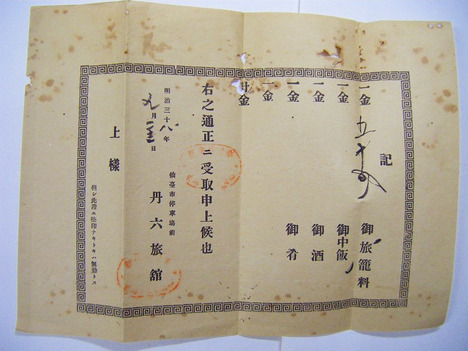 記
一金 五十 御旅籠料
一金 御中飯
一金 御酒
一金 御肴
一
計金
右之通正ニ受取申上候也
明治三十八年
九月 日
仙臺市停車場前
丹六旅舘
上樣
但シ此證ニ捺印ナキトキハ無効トス